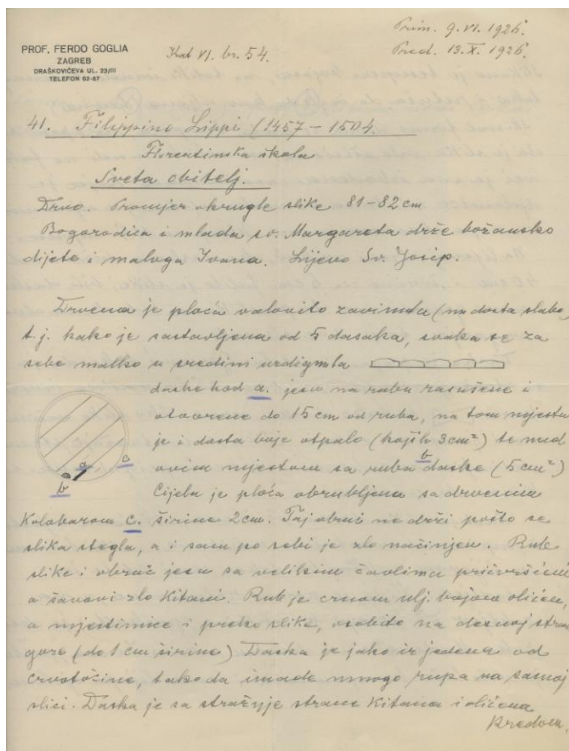 PROF. FERDO GOGLIA
ZAGREB
DRAŠKOVIĆEVA UL. 23/III
TELEFON 62-67
Kat VI. br. 54.
Prim. 9. VI. 1926.
Pred. 13. X. 1926.
41. Filippino Lippi (1457 – 1504.
Florentinska škola
Sveta obitelj.
Drvo. Promjer okrugle slike 81–82 cm
Bogorodica i mlada sv. Margareta drže božansko
dijete i maloga Ivana. Lijevo Sv. Josip.
Drvena je ploča valovito zavinuta (no dosta slabo,
t. j. kako je sastavljena od 5 dasaka, svaka se za
sebe malko u sredini uzdignula
daske kod a. jesu na rubu rasušene i
otvorene do 15 cm od ruba, na tom mjestu
je i dosta boje otpalo (kojih 3 cm²) te nad
ovim mjestom sa ruba daske (5 cm²)
b
Cijela je ploča obrubljena sa drvenim
a
a
b
Kolobarom c. širine 2 cm. Taj obruč ne drži pošto se
slika stegla, a i sam po sebi je zlo načinjen. Rub
slike i obruč jesu sa velikim čavlima pričvršćeni
a šavovi zlo Kitani. Rub je crnom ulj. bojom oličen,
a mjestimice i preko slike, osobito na desnoj strani
gore (do 1 cm širine) Daska je jako izjedena od
crvotočine, tako da imade mnogo rupa na samoj
slici. Daska je sa stražnje strane Kitana i oličena
Kredom,